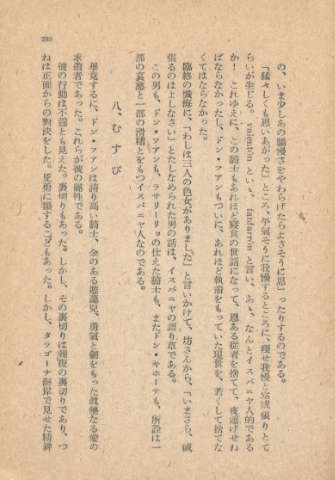 の、いま少しくの傲慢さをやわらげたらよさそうに思ったりするのである。
「猛々しくも思いあがった」ところ、平気そうに我慢するところに、痩せ我慢と空威張りとて
らいが生じる。valentón といい、fanfarrón と言い、ああ、なんとイスパニヤ人的である
か！　これゆえに、この騎士もあれほど寝食の世話になって、恩ある従者を捨てて、夜逃げせね
ばならなかったし、ドン・フアンもついに、あれほど執着をもっていた現世を、若くして捨てな
くてはならなかった。
臨終の懺悔に、「わしは三人の色女がありました」と言いかけて、坊さんから、「いまさら、威
張るのは止しなさい」とたしなめられた男の話は、イスパニヤの語り草である。
この男も、ドン・フアンも、ラサリーリョの仕えた騎士も、またドン・キホーテも、所詮は一
部の哀愁と一部の滑稽とをもつイスパニヤ人なのである。
八、むすび
畢竟するに、ドン・フアンは誇り高い騎士、金のある遊蕩児、勇気と剣をもった真摯なる愛の
求道者であった。これらが彼の属性である。
彼の行動は不遜とも見えた。裏切りもあった。しかし、その裏切りは報復の裏切りであり、つ
ねに正面からの対決をした。死者に類することもあった。しかし、タラゴーナ海岸で見せた精神